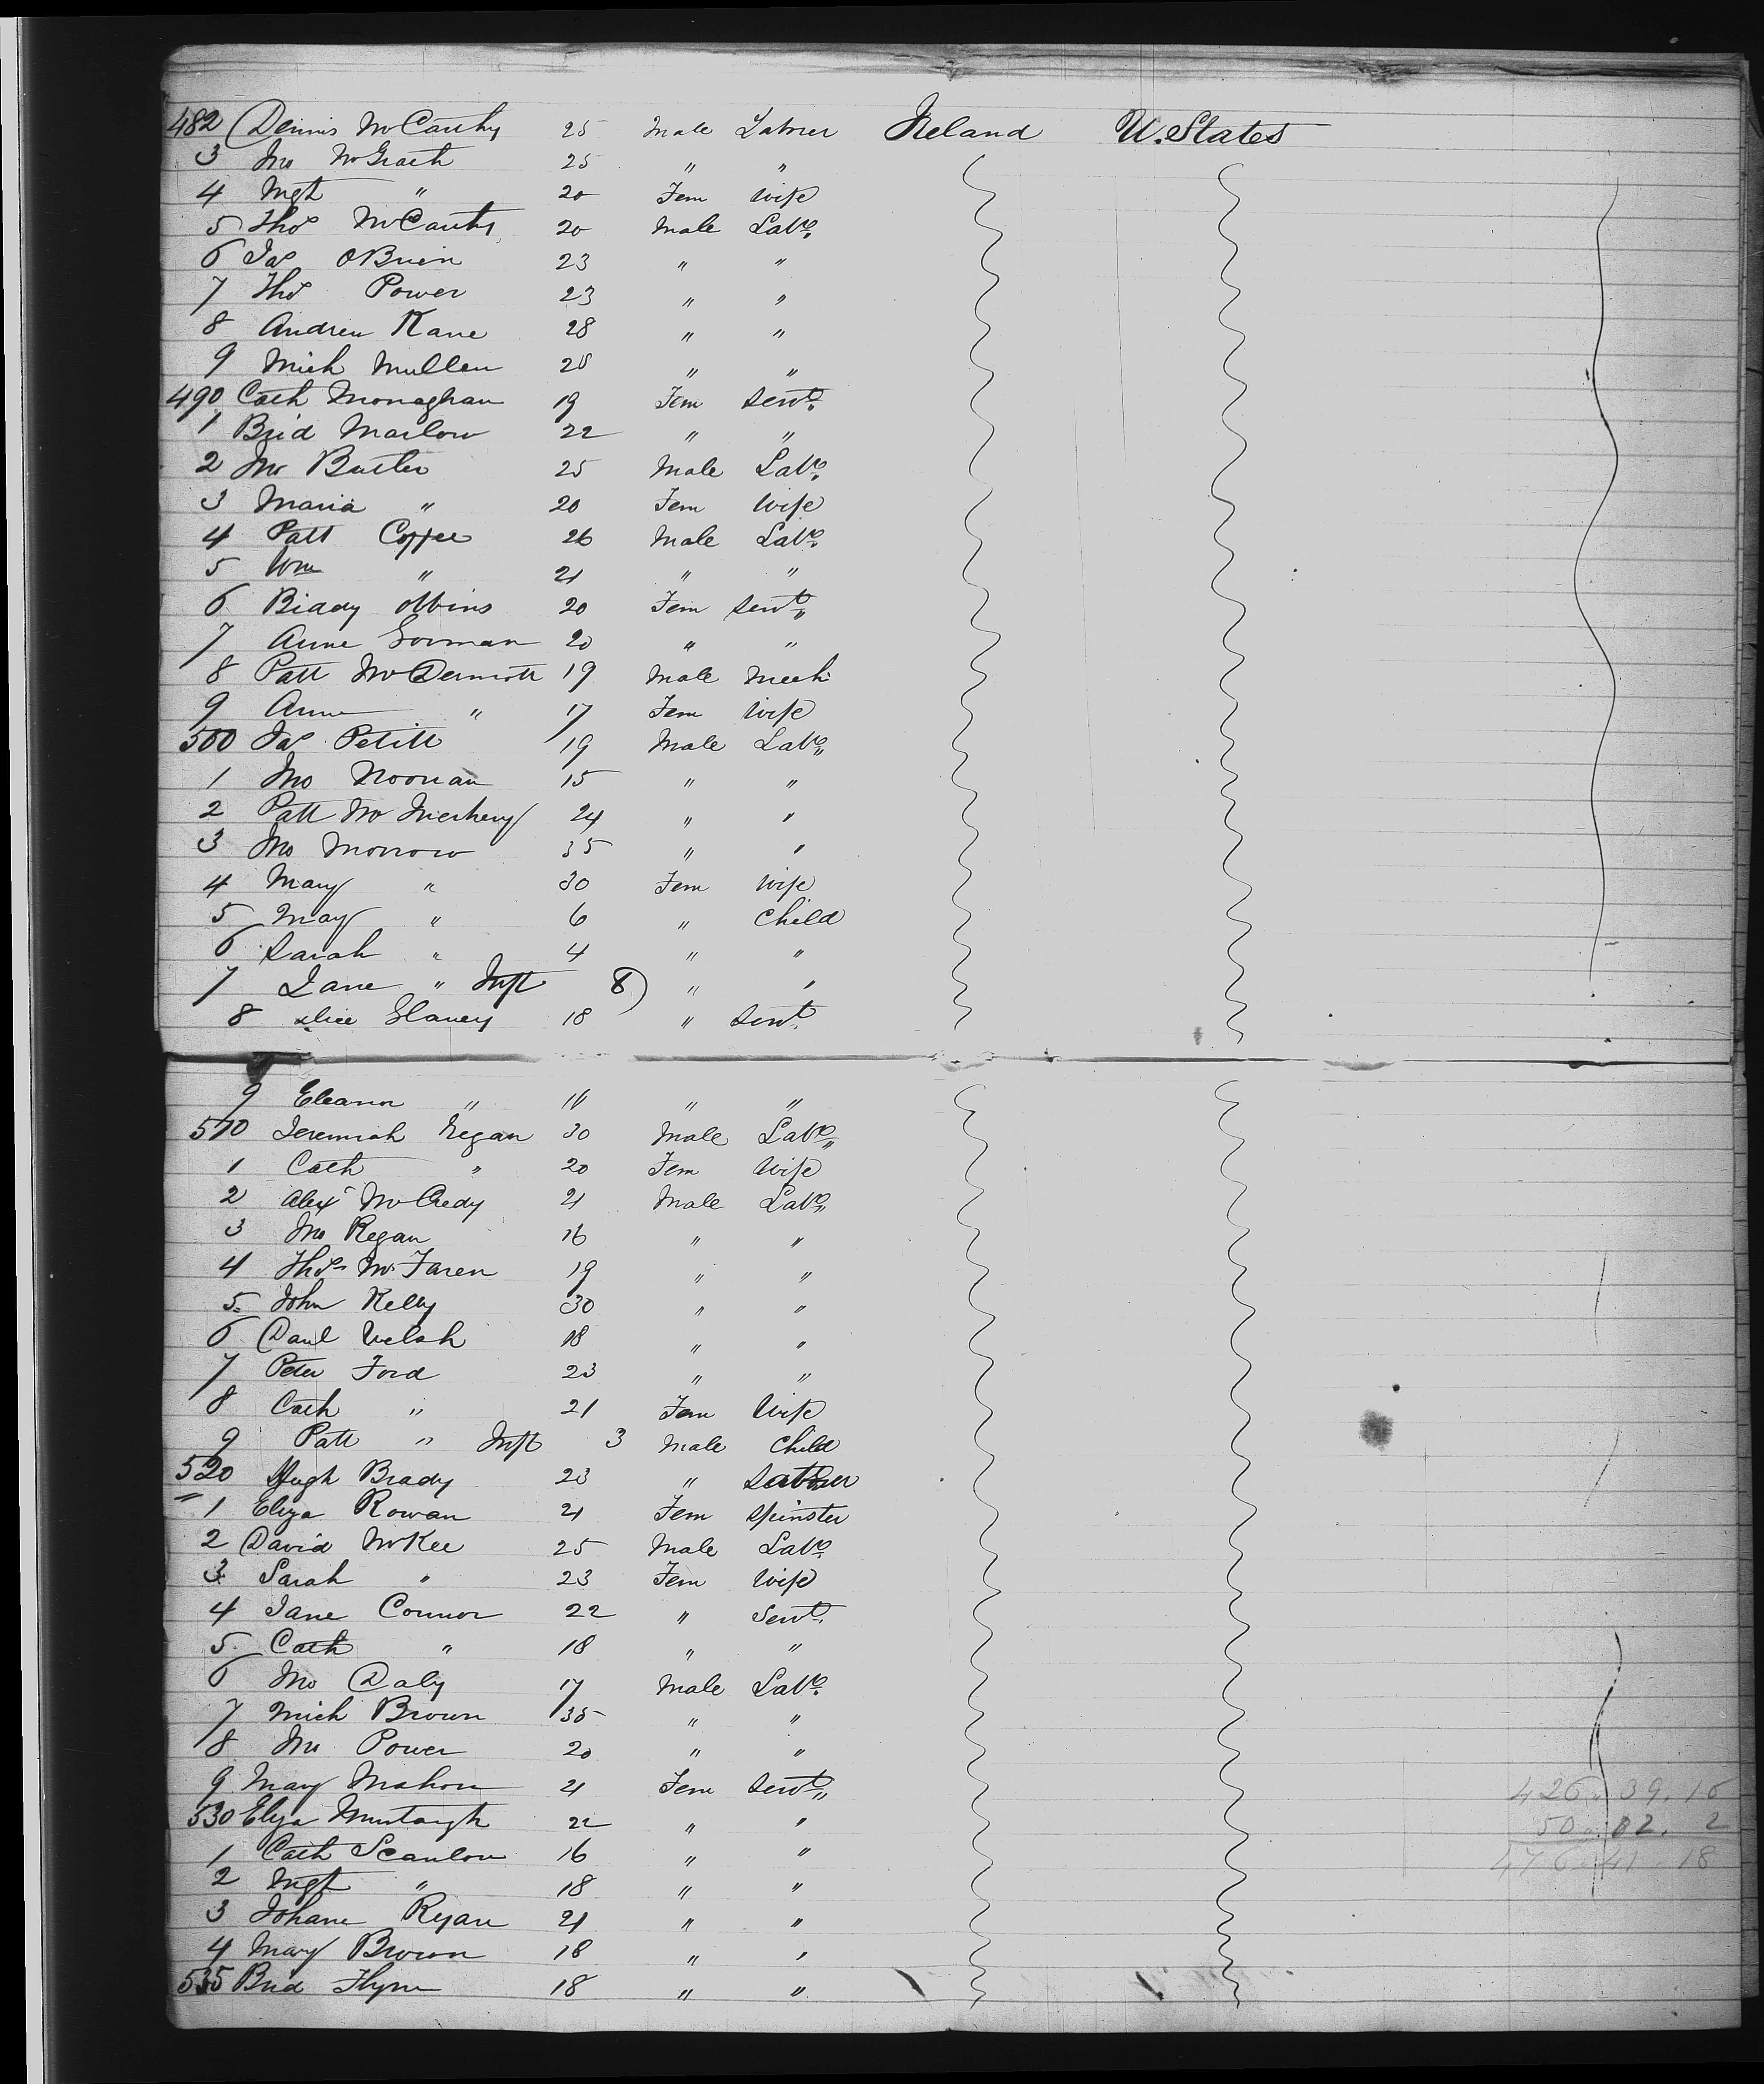 482 Dennis McCarthy 25 Male Labrer Ireland U. States
3 Jno McGrath 25 " "
4 Mgt " 20 Fem Wife
5 Thos McCarthy 20 Male Labr
6 Jas OBrien 23 " "
7 Thos Power 23 " "
8 Andrew Kane 28 " "
9 Mich Mullen 28 " "
490 Cath Monaghan 19 Fem Servt
1 Brid Marlow 22 " "
2 Jno Butler 25 Male Labr
3 Maria " 20 Fem Wife
4 Patt Coffee 26 Male Labr
5 Wm " 21 " "
6 Biddy 20 Fem Servt
7 Anne Gorman 20 " "
8 Patt McDermott 19 Male Mech
9 Anne " 17 Fem Wife
500 Jas Petitt 19 Male Labr
1 Jno Noonan 15 " "
2 Patt Mc 24 " "
3 Jno Morrow 35 " "
4 Mary " 30 Fem Wife
5 Mary " 6 " Child
6 Sarah " 4 " "
7 Jane " Inft 8) " "
8 Alice Slaney 18 " Servt
9 Eleanor " 16 " "
510 Jeremiah Regan 30 Male Labr
1 Cath " 20 Fem Wife
2 Alexr McCredy 21 Male Labr
3 Jno Regan 16 " "
4 Thos McFaren 19 " "
5 John Kelly 30 " "
6 Danl Welsh 18 " "
7 Peter Ford 23 " "
8 Cath " 21 Fem Wife
9 Patt " Inft 3 Male Child
520 Hugh Brady 23 " Labrer
1 Eliza Rowan 21 Fem Spinster
2 David McKee 25 Male Labr
3 Sarah " 23 Fem Wife
4 Jane Connor 22 " Servt
5 Cath " 18 " "
6 Jno Daly 17 Male Labr
7 Mich Brown 35 " "
8 Jno Power 20 " "
9 Mary Mahon 21 Fem Servt
530 Eliza Murtaugh 22 " "
1 Cath Scanlon 16 " "
2 Mgt " 18 " "
3 Johana Ryan 21 " "
4 Mary Brown 18 " "
535 Brid Flynn 18 " "
426 39. 16
50 02. 2
476 41. 18